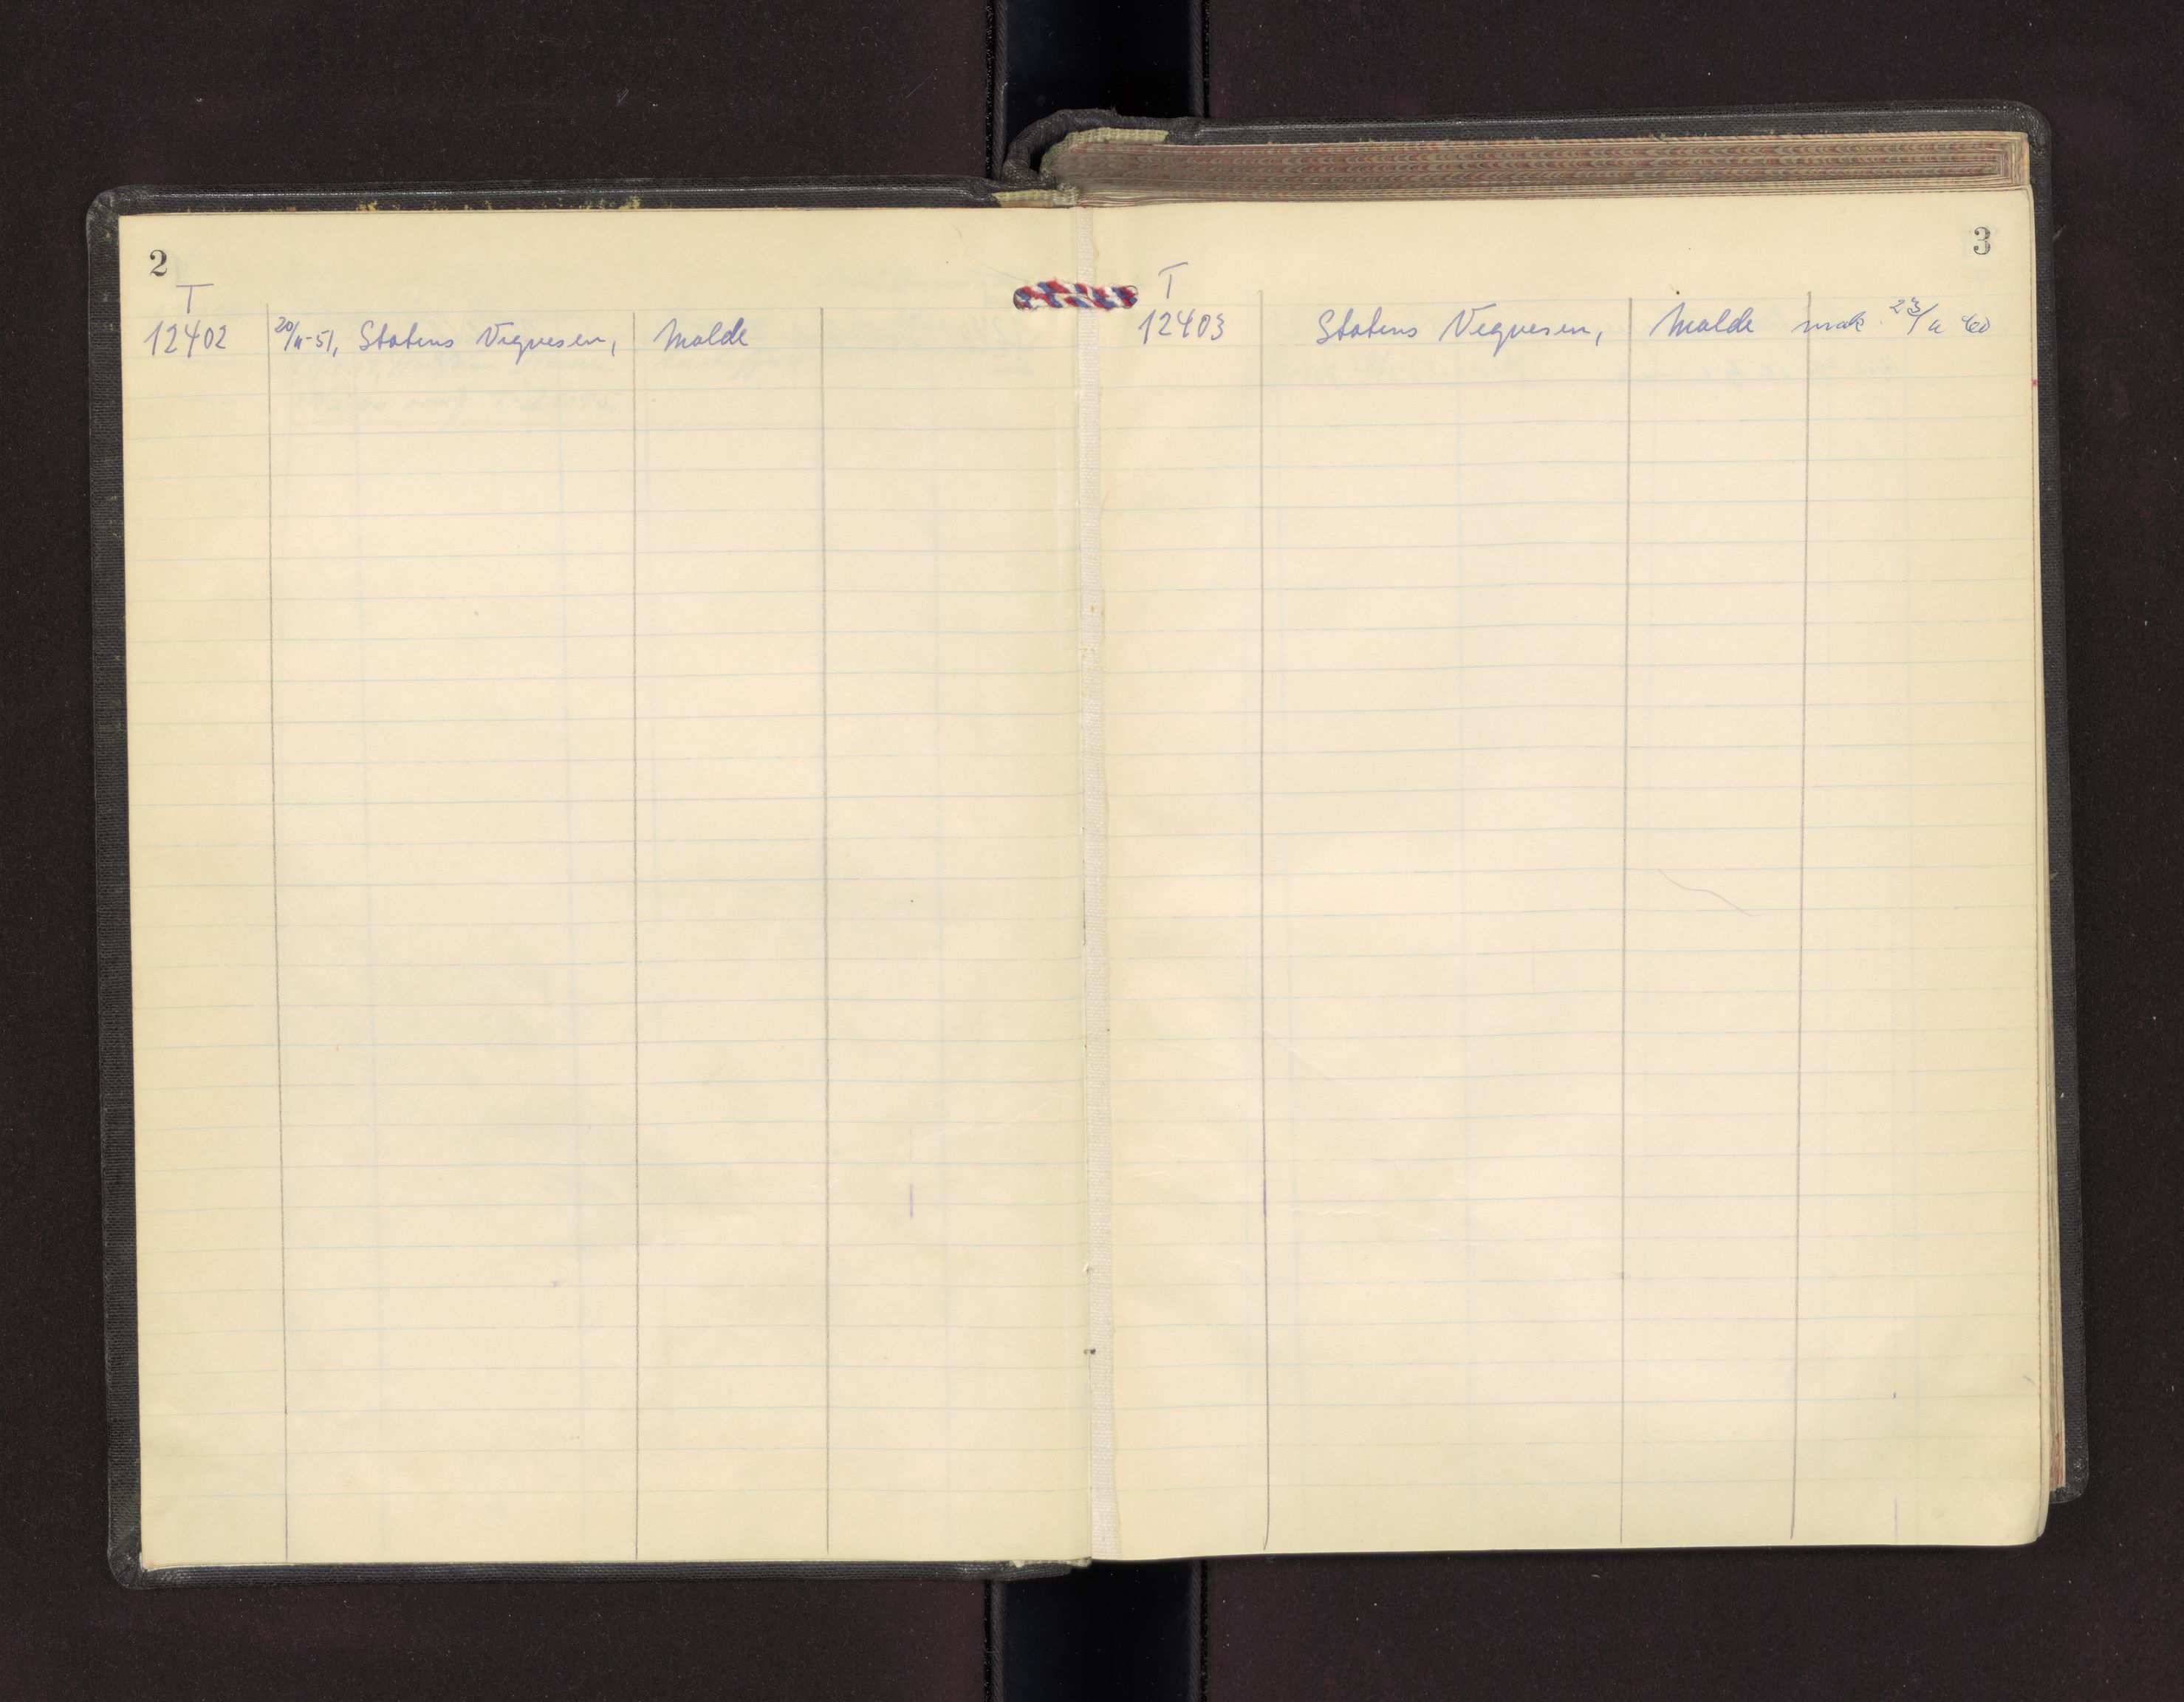 2
T
12402 20/11-51, Statens Vegvesen, Molde
3
T
12403 Statens Vegvesen, Molde vrak. 23/11 60